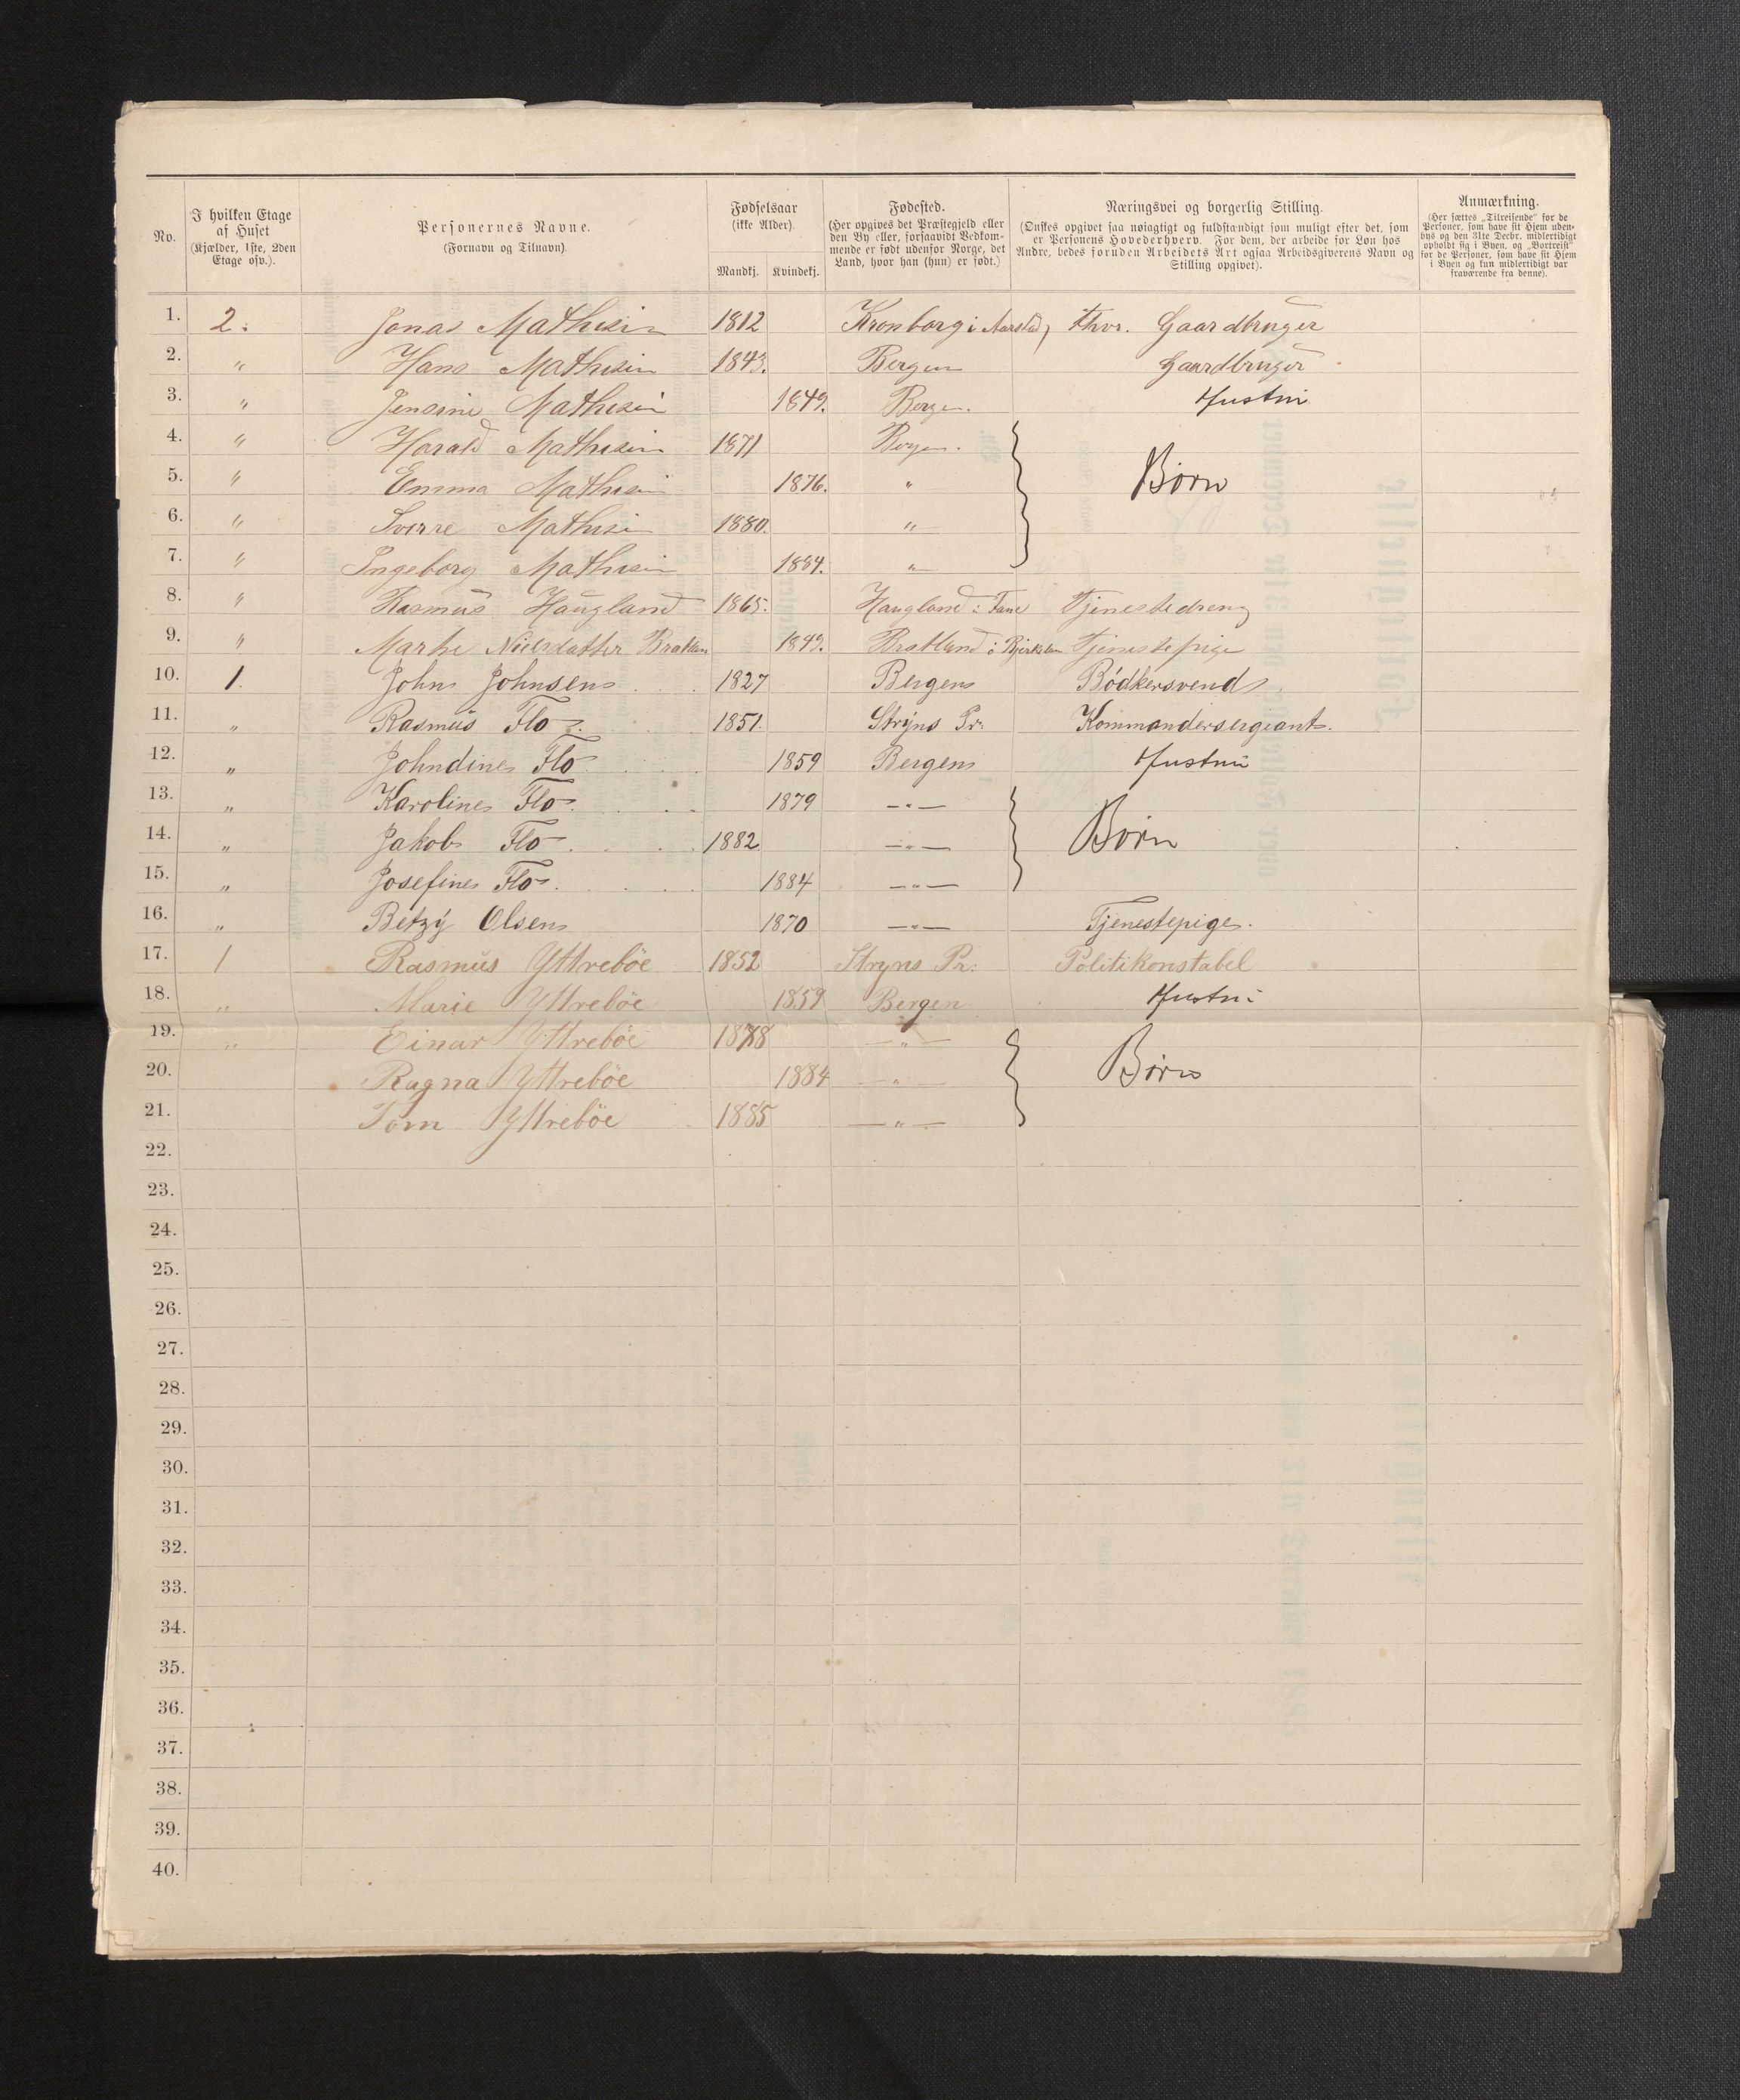 No.
I hvilken Etage af Huset (Kjælder, 1ste, 2den Etage osv.).
Personernes Navne. (Fornavn og Tilnavn).
Fødselsaar (ikke Alder). Mandkj. Kvindekj.
Fødested. (Her opgives det Præstegjeld eller den By eller, forsaavidt Vedkommende er født udenfor Norge, det Land, hvor han (hun) er født.)
Næringsvei og borgerlig Stilling. (Ønskes opgivet saa nøiagtigt og fuldstændigt som muligt efter det, som er Personens Hovederhverv. For dem, der arbeide for Løn hos Andre, bedes foruden Arbeidets Art ogsaa Arbeidsgiverens Navn og Stilling opgivet).
Anmærkning. (Her sættes „Tilreisende" for de Personer, som have sit Hjem udenbys og den 31te Decbr. midlertidigt opholdt sig i Byen, og „Bortreist" for de Personer, som have sit Hjem i Byen og kun midlertidigt var fraværende fra denne).
1. 2. Jonas Mathisen 1812 Kronborg i Aarstad, fhvr. Gaardbruger
2. " Hans Mathisen 1843. Bergen Gaardbruger
3. " Jensine Mathisen 1849. Bergen. Hustru
4. " Harald Mathisen 1871 Bergen.
5. " Emma Mathisen 1876. " Børn
6. " Sverre Mathisen 1880. "
7. " Ingeborg Mathisen 1884. "
8. " Rasmus Haugland 1865. Haugland i Fane Tjenestedreng
9. " Marthe Nielsdatter 1849. Tjenestepige
10. 1. John Johnsen 1827 Bergen Bødkersvend
11. " Rasmus Flo 1851. Stryns Pr: Kommandersergeant.
12. " Johndine Flo 1859 Bergen Hustru
13. " Karoline Flo 1879 —"—
14. " Jakob Flo 1882 —"— Børn
15. " Josefine Flo 1884 —"—
16. " Betzy Olsen 1870 —"— Tjenestepige.
17. 1 Rasmus Yttrebøe 1852 Stryns Pr: Politikonstabel
18. " Marie Yttrebøe 1859 Bergen Hustru
19. " Einar Yttrebøe 1878 —"—
20. Ragna Yttrebøe 1884 —"— Børn
21. Yttrebøe 1885 —"—
22.
23.
24.
25.
26.
27.
28.
29.
30.
31.
32.
33.
34.
35.
36.
37.
38.
39.
40.